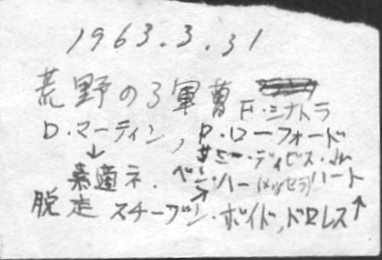 1963.3.31
荒野の3軍曹
F・シナトラ
D・マーティン, P・ローフォード
↓ サミー・デイビス・Jr
素適ネ. ベン・ハー(メッセラ)ハート
脱走 スチーブン・ボイド,ドロレス↑